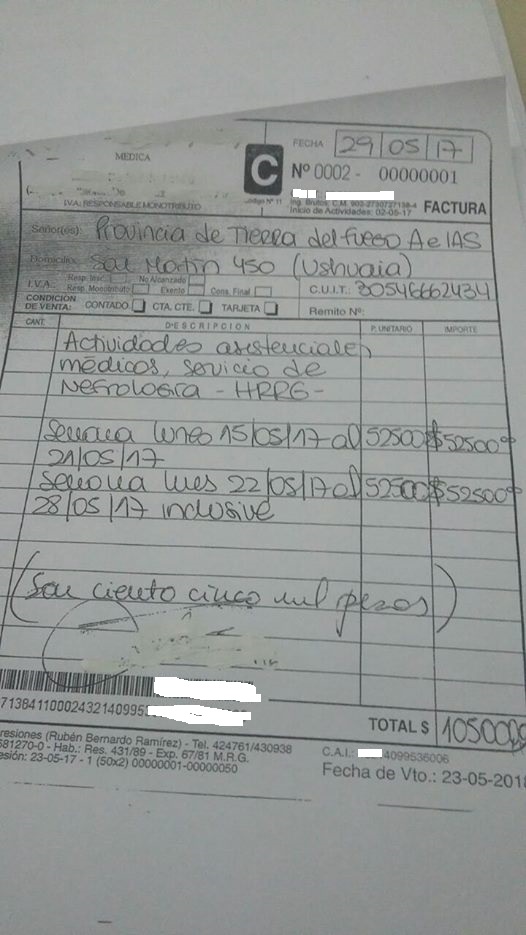 MEDICA
C
Código Nº 11
FECHA 29 05 17
Nº 0002 - 00000001
Ing. Brutos: C.M. 902-2730727138-4
Inicio de Actividades: 02-05-17
FACTURA
I.V.A: RESPONSABLE MONOTRIBUTO
Señor(es): Provincia de Tierra del fuego A e IAS
Domicilio: San Martín 450 (Ushuaia)
I.V.A.: Resp. Insc. No Alcanzado
Resp. Monotributo Exento Cons. Final
C.U.I.T.: 30546662434
CONDICIÓN DE VENTA: CONTADO CTA. CTE. TARJETA Remito Nº:
CANT. DESCRIPCION P. UNITARIO IMPORTE
Actividades asistenciales
médicas, servicio de
Nefrología - HRRG -
Semana lunes 15/05/17 al 52500 $52500
21/05/17
Semana lunes 22/05/17 al 52500 $52500
28/05/17 inclusive
(Son ciento cinco mil pesos)
713841100024321409953
TOTAL $ 105000
resiones (Rubén Bernardo Ramírez) - Tel. 424761/430938
581270-0 - Hab.: Res. 431/89 - Exp. 67/81 M.R.G.
esión: 23-05-17 - 1 (50x2) 00000001-00000050
C.A.I.: 4099536006
Fecha de Vto.: 23-05-2018